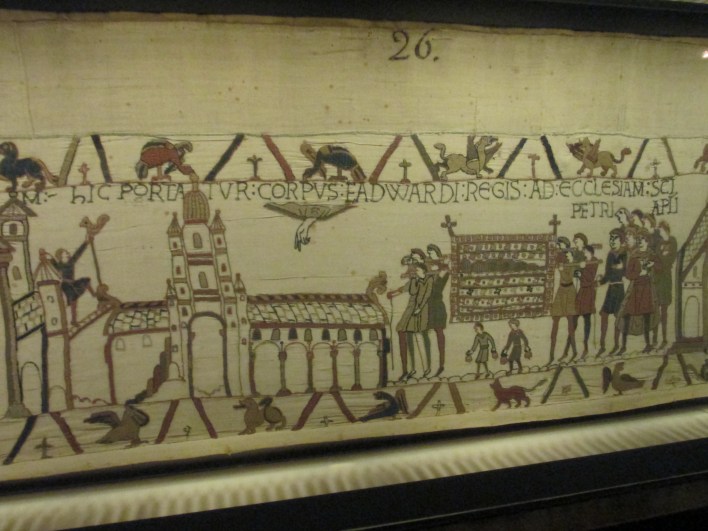 26.
M:- hIC PORTATVR : CORPVS : EADWARDI : REGIS : AD : ECCLESIAM : SCI
PETRI APLI